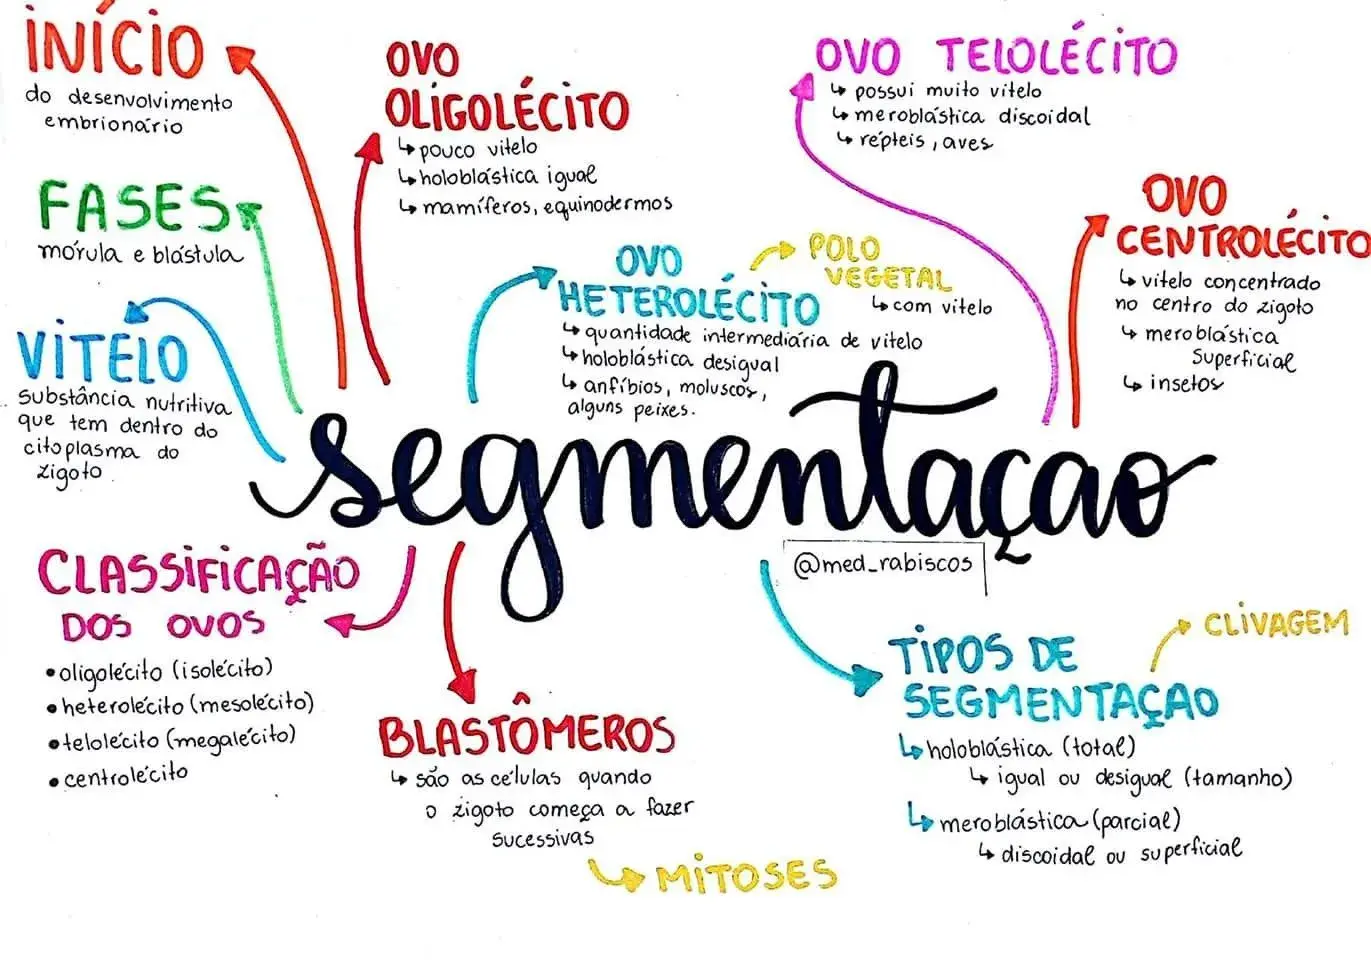 INÍCIO
do desenvolvimento
embrionário
FASES
mórula e blástula
VITELO
substância nutritiva
que tem dentro do
citoplasma do
zigoto
OVO
OLIGOLÉCITO
↳ pouco vitelo
↳ holoblástica igual
↳ mamíferos, equinodermos
OVO
HETEROLÉCITO
↳ quantidade intermediária de vitelo
↳ holoblástica desigual
↳ anfíbios, moluscos,
alguns peixes.
POLO
VEGETAL
↳ com vitelo
OVO TELOLÉCITO
↳ possui muito vitelo
↳ meroblástica discoidal
↳ répteis, aves
OVO
CENTROLÉCITO
↳ vitelo concentrado
no centro do zigoto
↳ meroblástica
superficial
↳ insetos
segmentaçao
@med_rabiscos
CLASSIFICAÇÃO
DOS OVOS
• oligolécito (isolécito)
• heterolécito (mesolécito)
• telolécito (megalécito)
• centrolécito
BLASTÔMEROS
↳ são as células quando
o zigoto começa a fazer
sucessivas
↳ MITOSES
TIPOS DE
SEGMENTAÇAO
CLIVAGEM
↳ holoblástica (total)
↳ igual ou desigual (tamanho)
↳ meroblástica (parcial)
↳ discoidal ou superficial